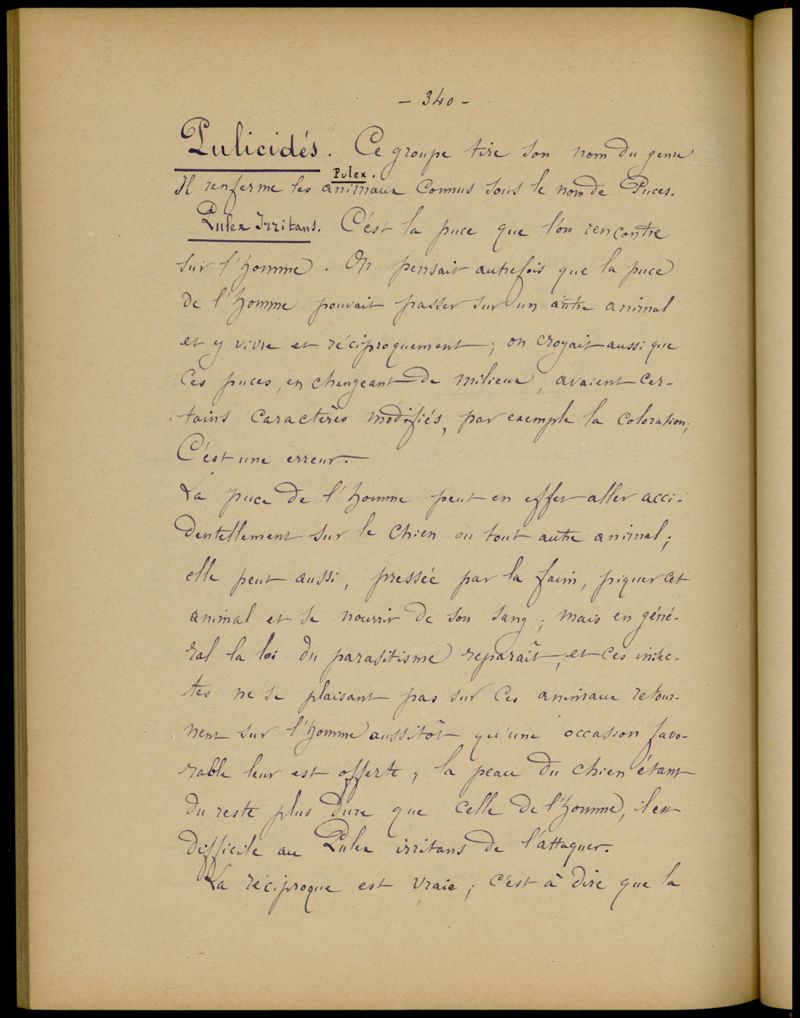 - 340 -
Pulicidés. Ce groupe tire son nom du genre
Pulex.
Il renferme les animaux connus sous le nom de Puces.
Pulex Irritans. C'est la puce que l'on rencontre
sur l'homme. On pensait autrefois que la puce
de l'homme pouvait passer sur un autre animal
et y vivre et réciproquement ; on croyait aussi que
ces puces, en changeant de milieux, avaient cer-
tains caractères modifiés, par exemple la coloration;
C'est une erreur.-
La puce de l'homme peut en effet aller acci-
dentellement sur le chien ou tout autre animal ;
elle peut aussi, pressée par la faim, piquer cet
animal et se nourrir de son sang ; mais en géné-
ral la loi du parasitisme reparaît, et ces insec-
tes ne se plaisant pas sur ces animaux retour-
nent sur l'homme aussitôt qu'une occasion favo-
rable leur est offerte ; la peau du chien étant
du reste plus dure que celle de l'homme, il est
difficile au Pulex irritans de l'attaquer.
La réciproque est vraie ; c'est à dire que la